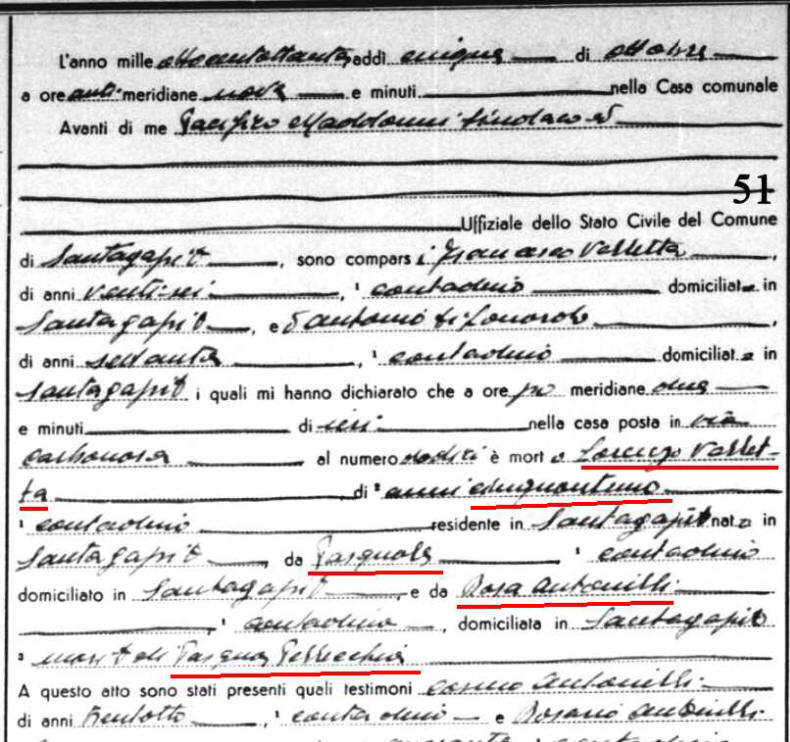 L'anno mille ottocentottanta, addì cinque di ottobre
a ore anti meridiane nove e minuti nella Casa comunale
Avanti di me Pacifico Maddonni Sindaco ed
51
Uffiziale dello Stato Civile del Comune
di Santagapit, sono compars i Francesco Valletta,
di anni ventisei, ¹ contadino domiciliat o in
Santagapit, e Antonio di
di anni settanta, ¹ contadino domiciliat o in
Santagapit, i quali mi hanno dichiarato che a ore po meridiane due
e minuti di ieri nella casa posta in via
carbonara al numero dodici è mort o Lorenzo Vallet-
ta di ² anni cinquantuno
¹ contadino residente in Santagapit nat o in
Santagapit da Pasquale ¹ contadino
domiciliato in Santagapit, e da Rosa Antonilli
, ¹ contadina, domiciliata in Santagapit
³ marit di Pasqua Petrecchia
A questo atto sono stati presenti quali testimoni Cosmo Antonilli
di anni trentotto, ¹ contadino e Rosario Antonilli
quaranta